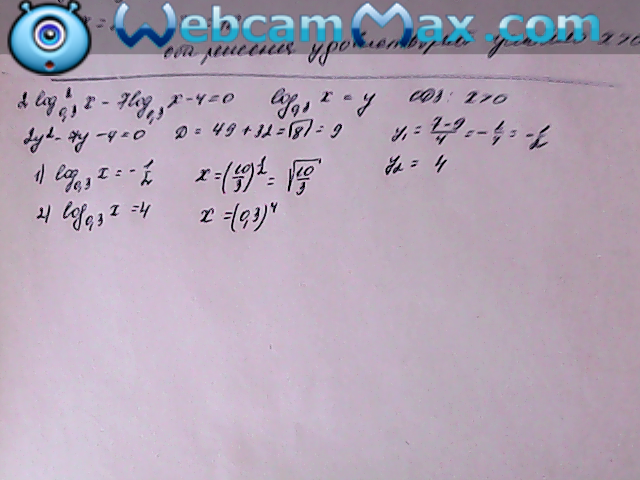 WebcamMax.com
оба решения удовлетворяют условию x>0
2 log²₀,₃ x - 7 log₀,₃ x - 4 = 0 log₀,₃ x = y ОДЗ: x>0
2y² - 7y - 4 = 0 D = 49 + 32 = √81 = 9 y₁ = (7-9)/4 = - 1/2
1) log₀,₃ x = - 1/2 x = (10/3)^(1/2) = √(10/3) y₂ = 4
2) log₀,₃ x = 4 x = (0,3)⁴